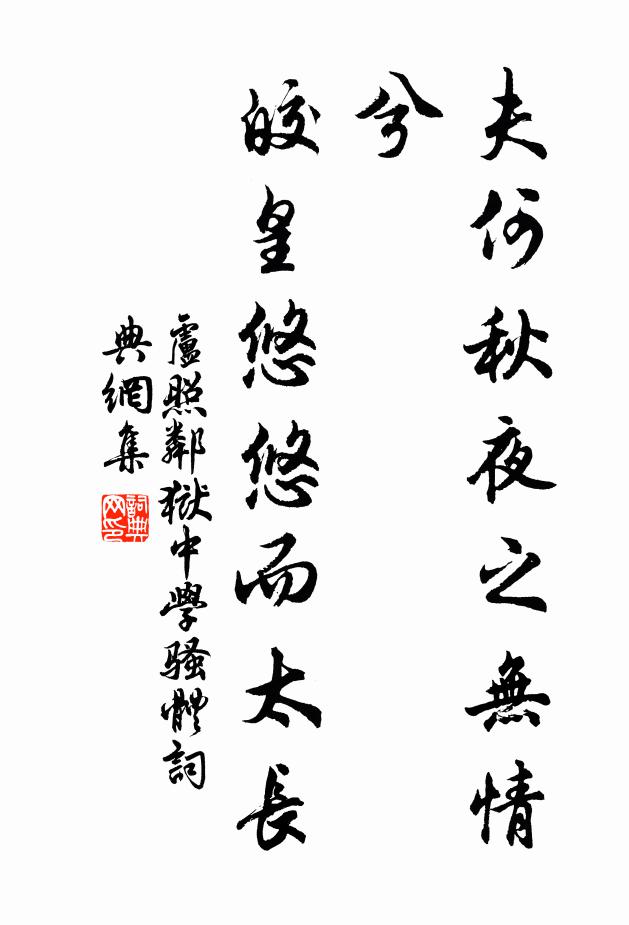 夫何秋夜之無情
兮
皎皇悠悠而太長
盧照鄰獄中學騷體詞
典網集
詞典网印